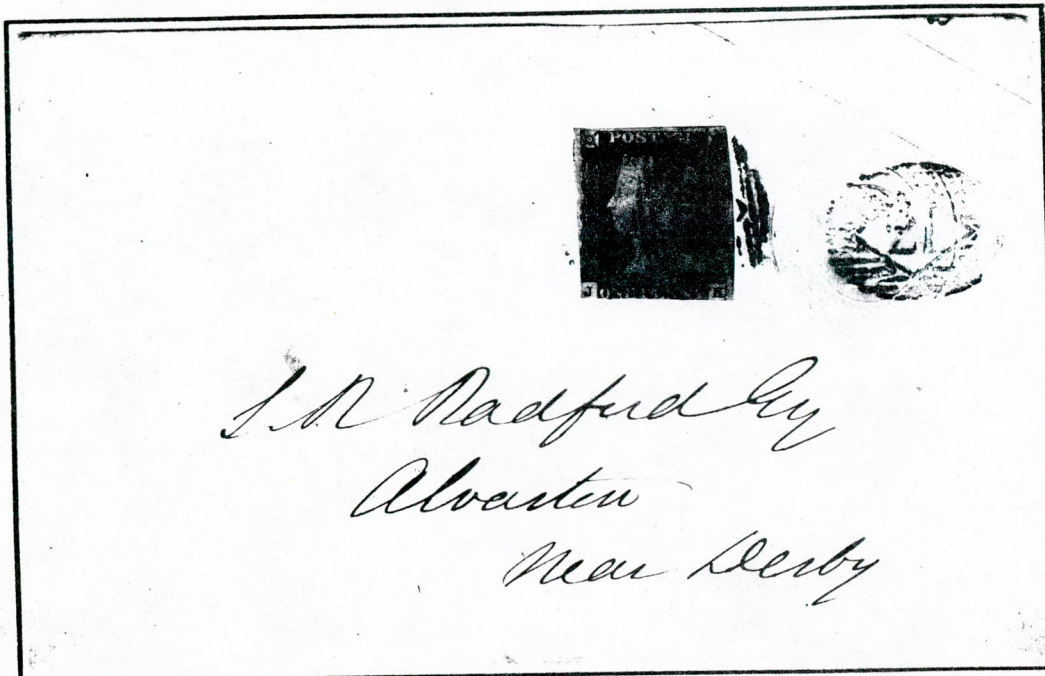 POSTAGE
J K
S. R. Radford Esq
Alvaston
Near Derby